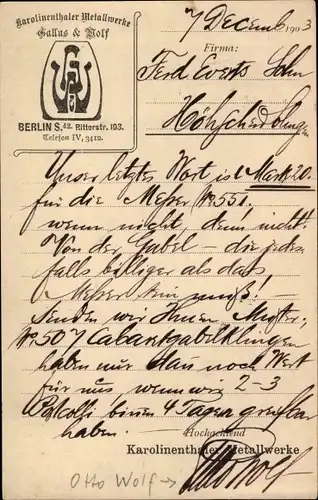 Karolinenthaler Metallwerke
Gallus & Wolf
BERLIN S.42. Ritterstr. 103.
Telefon IV, 3412.
7 Decemb 1903
Firma:
Ferd Everts Sohn
Höhscheid
Unser letztes Wort ist Mark 20.
für die Messer No. 551.
wenn nicht, denn nicht!
Von der Gabel – die jeden
falls billiger als das
Messer sein muß!
senden wir Ihnen Muster.
No. 507
haben nur dann noch Wert
für uns wenn wir 2–3
binnen 4 Tagen
haben.
Hochachtend
Karolinenthaler Metallwerke
Otto Wolf
Otto Wolf →